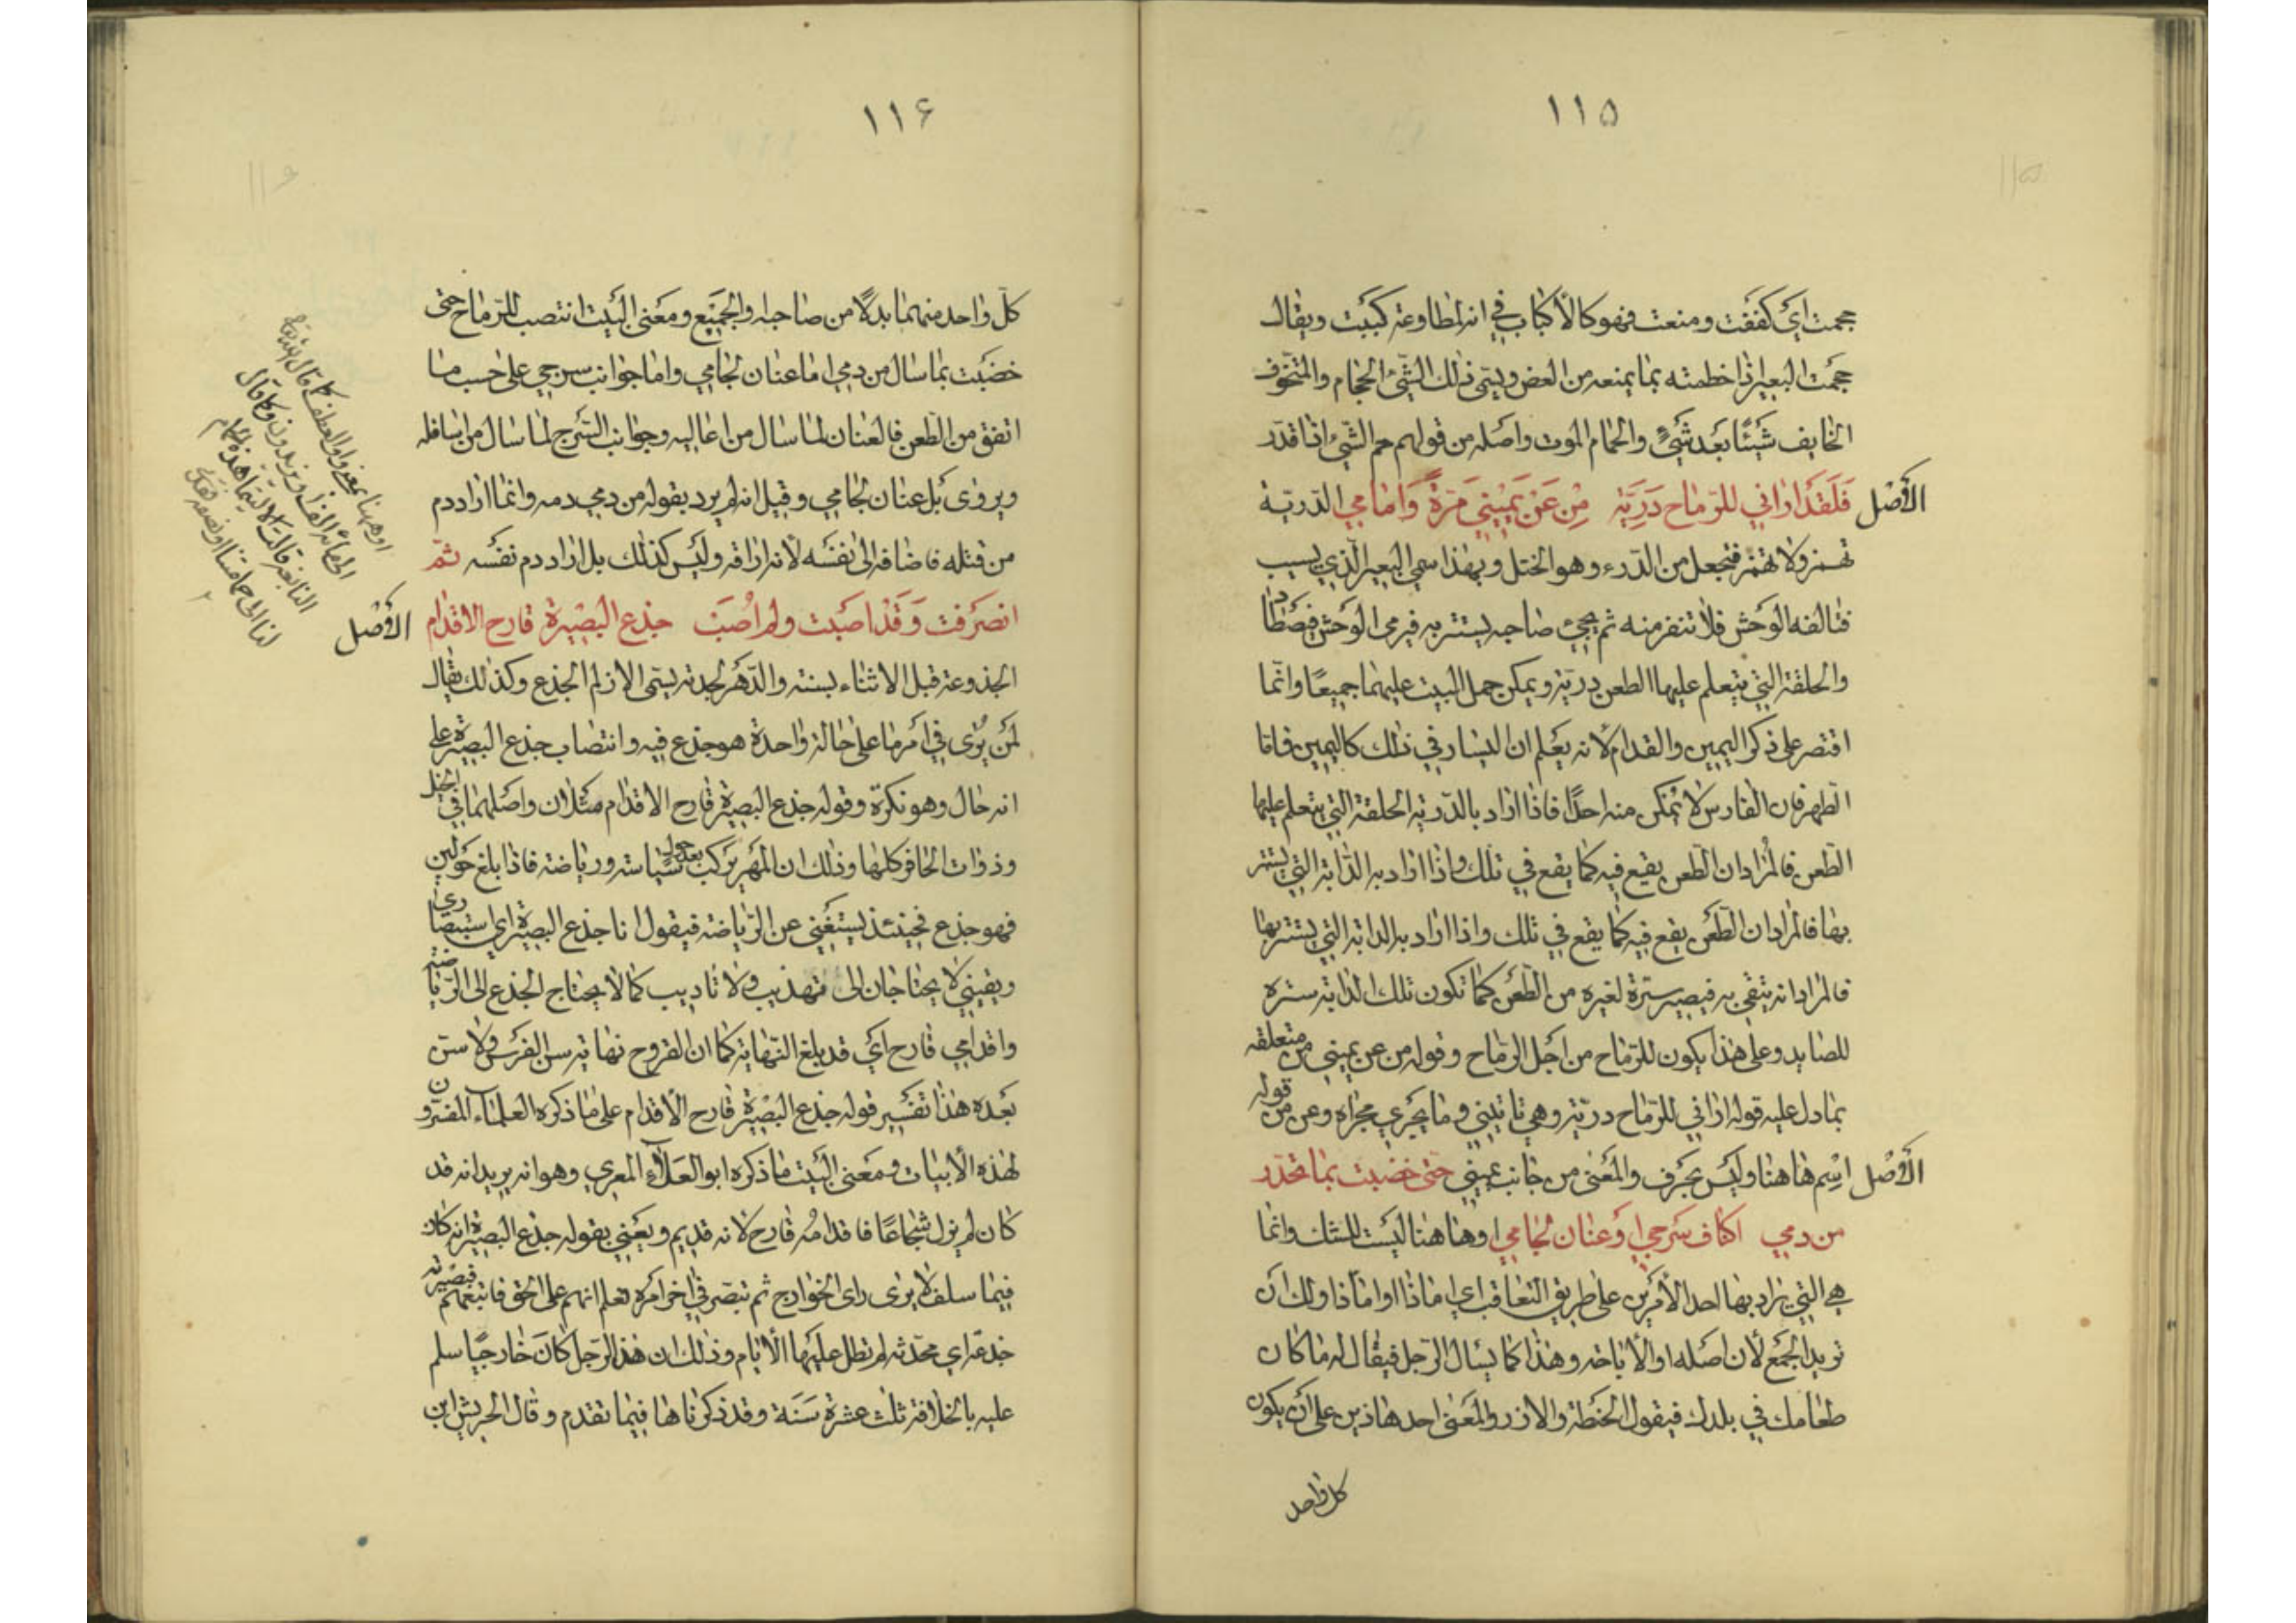 ١١٥
حجمت اي كففت ومنعت فهو كالأكباب في انه لمطاوعة كببت ويقال
حجمت البعير اذا خطمته بما يمنعه من العض ويسمى ذلك الشيء الحجام والمتخوف
الخايف شيئًا بعد شيءٍ والحمام الموت واصله من قولهم حم الشيء اذا قدر
الأصل
فَلَقَد اراني للرماح دَرِيّة مِن عَن يَمِيني مَرّةً وَامامي الدرية
تهمز ولا تهمز فتجعل من الدرء وهو الختل وبهذا سمي البعير الذي يسيب
فتالفه الوحش فلا تنفر منه ثم يجيء صاحبه يستتر به فيرمى الوحش فيصطاد
والحلقة التي يتعلم عليها الطعن درية ويمكن حمل البيت عليهما جميعًا وانما
اقتصر على ذكر اليمين والقدام لأنه يعلم ان اليسار في ذلك كاليمين فاما
الظهر فان الفارس لا يمكن منه احدًا فاذا اراد بالدرية الحلقة التي يتعلم عليها
الطعن فالمراد ان الطعن يقع فيه كما يقع في تلك واذا اراد به الدابة التي يستتر
بها فالمراد ان الطعن يقع فيه كما يقع في تلك واذا اراد به الدابة التي يستتر بها
فالمراد انه يتقى به فيصير سترة لغيره من الطعن كما تكون تلك الدابة سترة
للصايد وعلى هذا يكون للرماح من اجل الرماح وقوله من عن يميني من متعلقه
بما دل عليه قوله اراني للرماح درية وهي تاتيني وما يجري مجراه وعن من قوله
الأصل
اسم هاهنا وليس بحرف والمعنى من جانب يميني حتى خضبت بما تحدر
من دمي اكناف سرجي او عنان لجامي او هاهنا ليست للشك وانما
هي التي يراد بها احد الأمرين على طريق التعاقب اي اما ذا او اما ذا ولك ان
تريد الجمع لأن اصله او الأباحة وهذا كما يسال الرجل فيقال له ما كان
طعامك في بلدك فيقول الحنطة والارز والمعنى احد هاذين على ان يكون
كل واحد
١١٦
كل واحد منهما بدلًا من صاحبه والجميع ومعنى البيت انتصب للرماح حتى
خضبت بما سال من دمي اما عنان لجامي واما جوانب سرجي على حسب ما
اتفق من الطعن فالعنان لما سال من اعاليه وجوانب السرج لما سال من اسافله
ويروى بل عنان لجامي وقيل انه لم يرد بقوله من دمي دمه وانما اراد دم
من قتله فاضافه الى نفسه لأنه اراقه وليس كذلك بل اراد دم نفسه ثم
الأصل
انصرفت وَقَد اصبت ولم اُصَب جذع البصيرة قارح الاقدام
الجذوعة قبل الاثناء بسنة والدهر لجدته يسمى الازلم الجذع وكذلك يقال
لمن يُرى في امر ما على حالة واحدة هو جذع فيه وانتصاب جذع البصيرة على
انه حال وهو نكرة وقوله جذع البصيرة قارح الاقدام مثلان واصلهما في الخيل
وذوات الحافر كلها وذلك ان المهر يركب بعد حول سياسة ورياضة فاذا بلغ حولين
فهو جذع فحينئذ يستغني عن الرياضة فيقول انا جذع البصيرة اي استبصاري
ويقيني لا يحتاجان الى تهذيب ولا تاديب كما لا يحتاج الجذع الى الرياضة
واقدامي قارح اي قد بلغ النهاية كما ان القروح نهاية سن الفرس ولا سن
بعده هذا تفسير قوله جذع البصيرة قارح الأقدام على ما ذكره العلماء المفسرون
لهذه الأبيات ومعنى البيت ما ذكره ابو العلاء المعري وهو انه يريد انه قد
كان لم يزل شجاعًا فاقدامُه قارح لانه قديم ويعني بقوله جذع البصيرة انه كان
فيما سلف لا يرى راى الخوارج ثم تبصر في اخر امره تعلم انهم على الحق فاتبعهم فبصيرته
جذعة اي محدثه لم تطل عليها الأيام وذلك ان هذا الرجل كان خارجيًا سلم
عليه بالخلافة ثلث عشرة سَنَة وقد ذكرناها فيما تقدم وقال الحريش ابن
او هاهنا بمعنى واو العطف كما قال الله تعالى
الى مائة الف او يزيدون وكما قال
النابغة قالت الا ليتما هذا الحمام
لنا الى حمامتنا او نصفه فقد